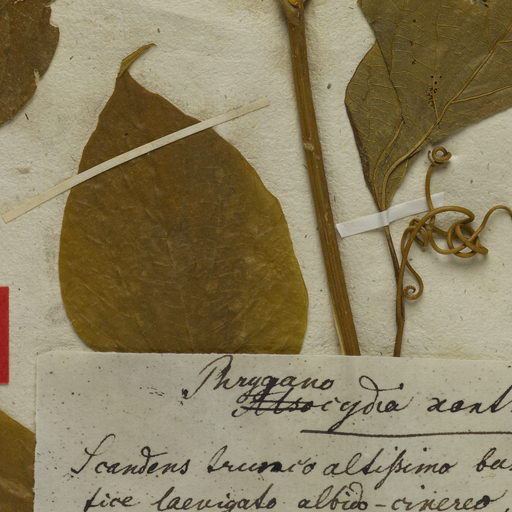 Phrygano
Alsocydia xant
Scandens trunco altissimo ba
tice laevigato albido-cinereo,